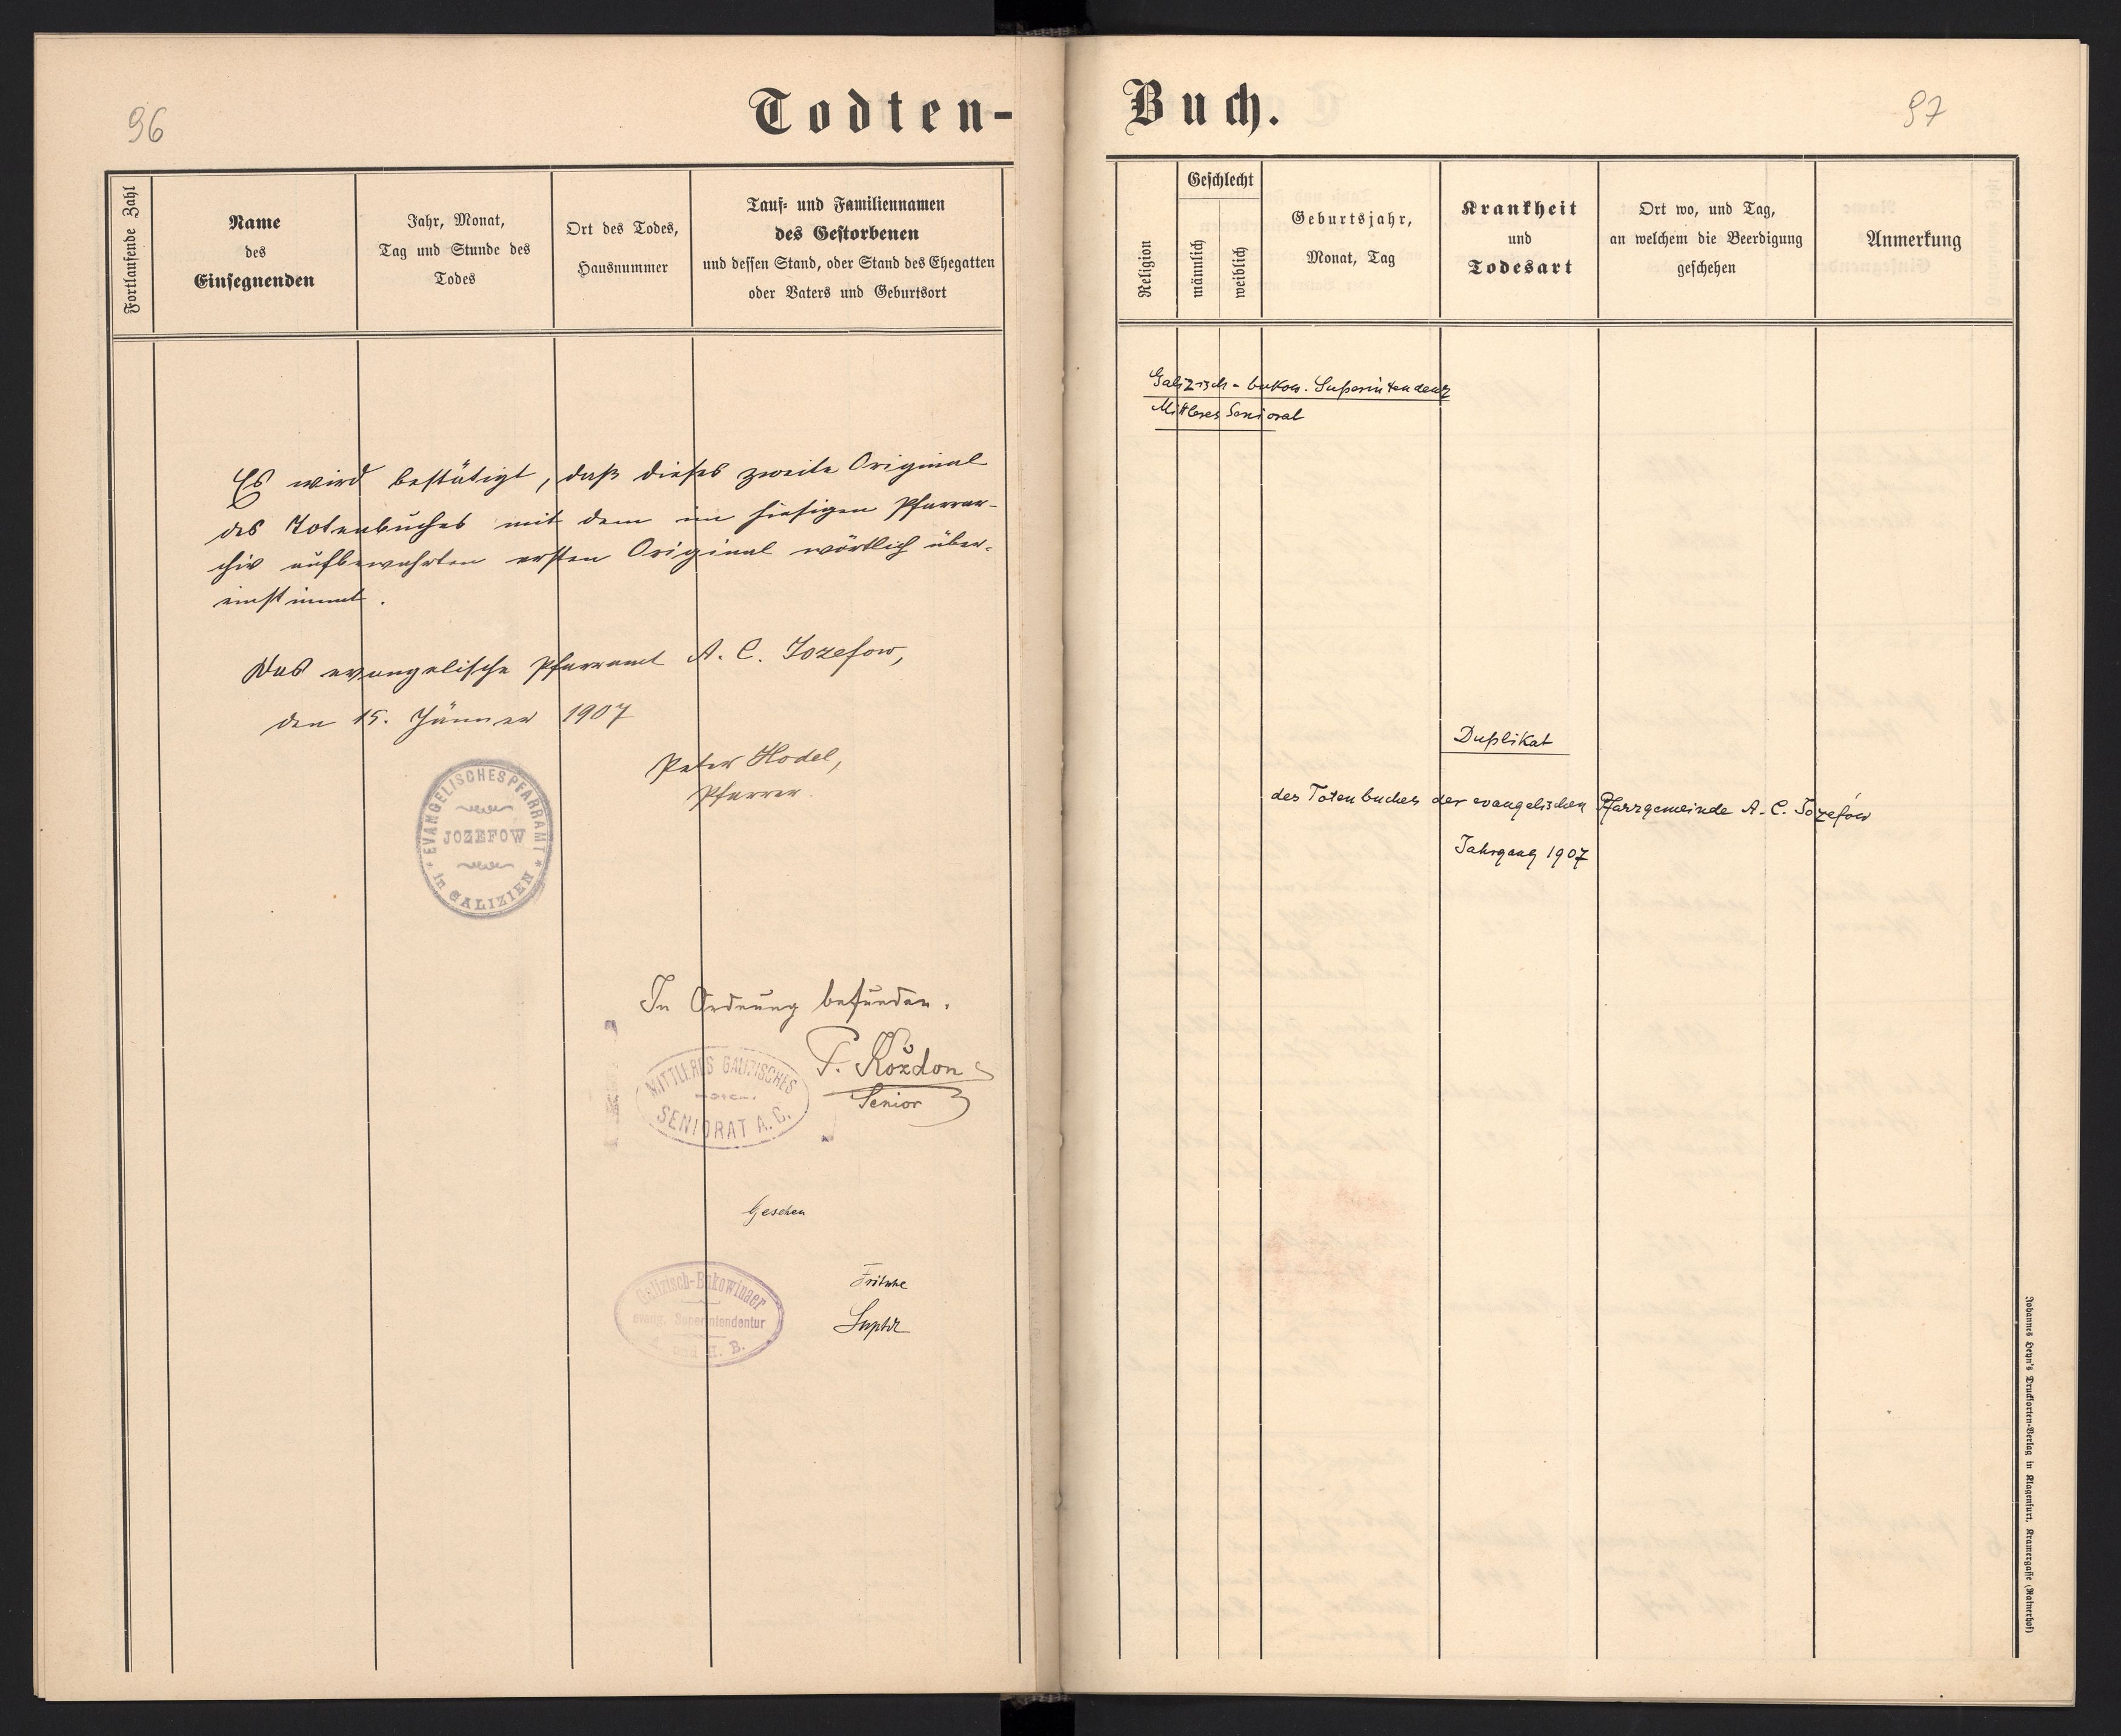 96
Todten-
Fortlaufende Zahl
Name
des
Einsegnenden
Jahr, Monat,
Tag und Stunde des
Todes
Ort des Todes,
Hausnummer
Tauf- und Familiennamen
des Gestorbenen
und dessen Stand, oder Stand des Ehegatten
oder Vaters und Geburtsort
Es wird bestätigt, daß dieses zweite Original
des Totenbuches mit dem im hiesigen Pfarrar-
chiv aufbewahrten ersten Original wörtlich über-
einstimmt.
Das evangelische Pfarramt A. C. Jozefow,
den 15. Jänner 1907
Peter Hodel,
Pfarrer.
EVANGELISCHES PFARRAMT
JOZEFOW
in GALIZIEN
In Ordnung befunden.
F. Kożdon
Senior
MITTLERES GALIZISCHES
SENIORAT A. C.
Gesehen
Fritsche
Suptdt
Galizisch-Bukowinaer
evang. Superintendentur
und H. B.
Buch.
97
Religion
Geschlecht
männlich
weiblich
Geburtsjahr,
Monat, Tag
Krankheit
und
Todesart
Ort wo, und Tag,
an welchem die Beerdigung
geschehen
Anmerkung
Galizisch-bukow. Superintendenz
Mittleres Seniorat
Duplikat
des Totenbuches der evangelischen Pfarrgemeinde A. C. Józefów
Jahrgang 1907
Johannes Heyn's Drucksorten-Verlag in Klagenfurt, Kramergasse (Rainerhof)